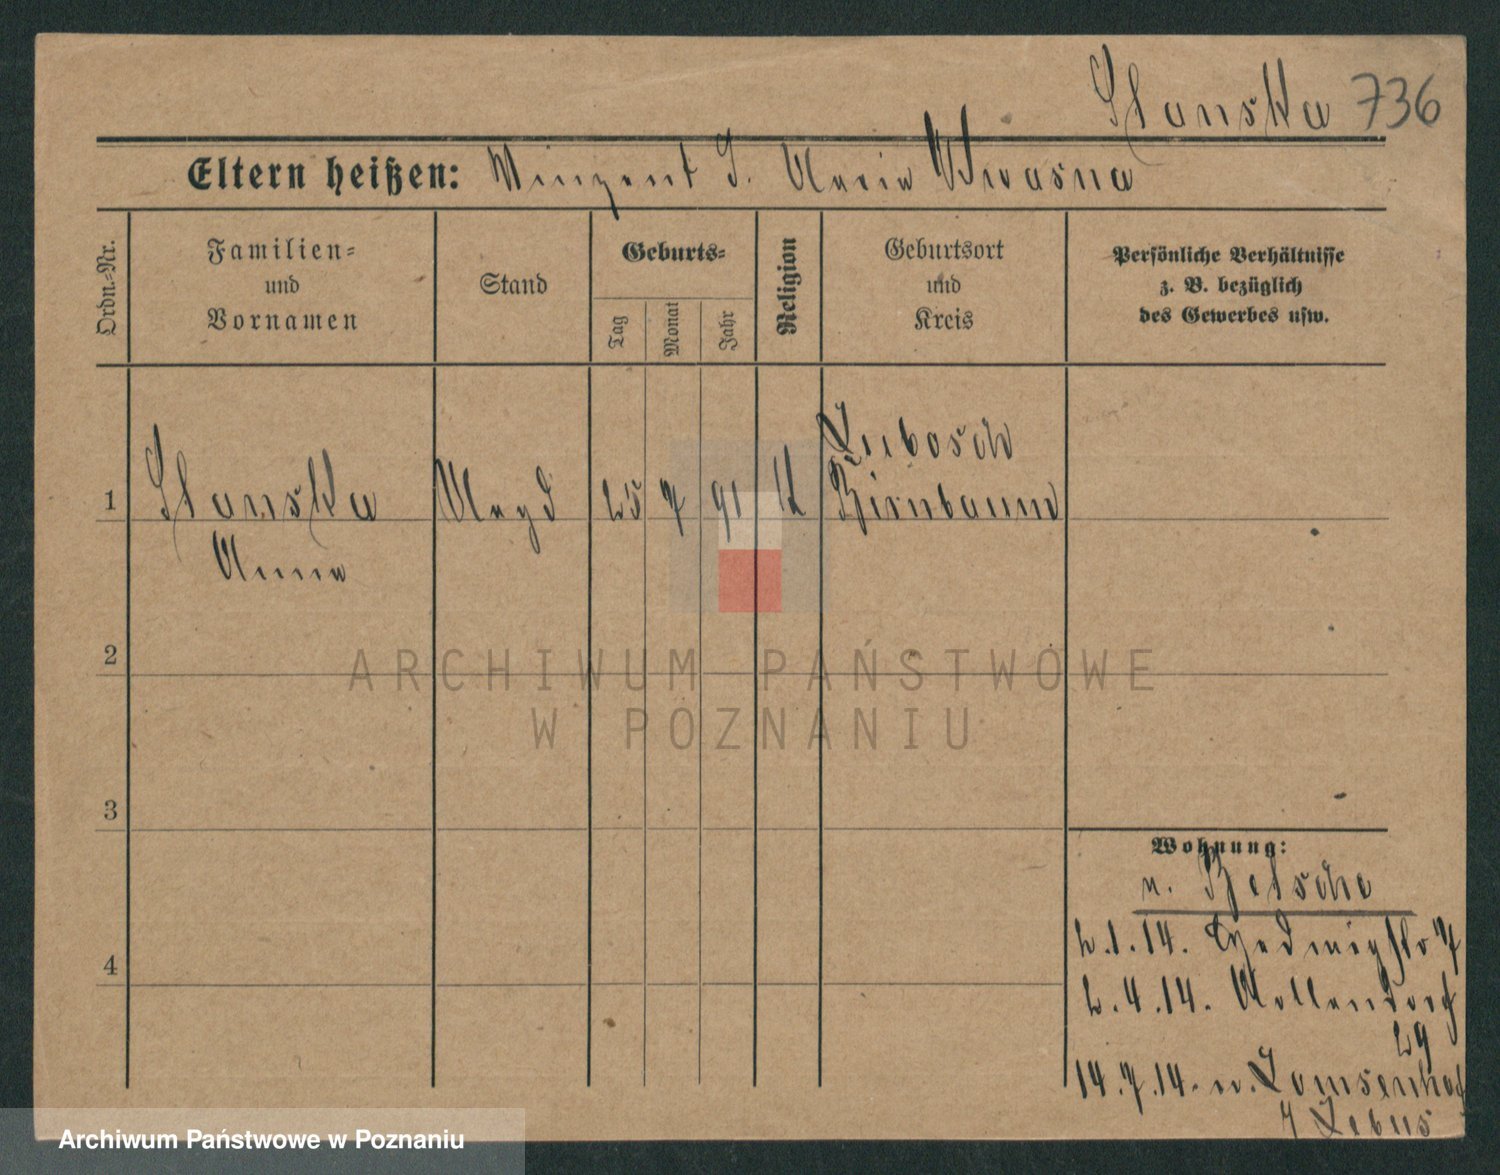 Slanska 736
Eltern heißen: Vinzent S. Maria
Ordn.-Nr.
Familien-
und
Vornamen
Stand
Geburts-
Tag
Monat
Jahr
Religion
Geburtsort
und
Kreis
Persönliche Verhältnisse
z. B. bezüglich
des Gewerbes usw.
1 Slanska Magd 25 7 91 K Lubosch
Birnbaum
Anna
2
3
4
ARCHIWUM PAŃSTWOWE
W POZNANIU
Wohnung:
n. Betsche
2.1.14. 7
2.4.14. Kollendorf
29
14.7.14. n.
Lebus
Archiwum Państwowe w Poznaniu